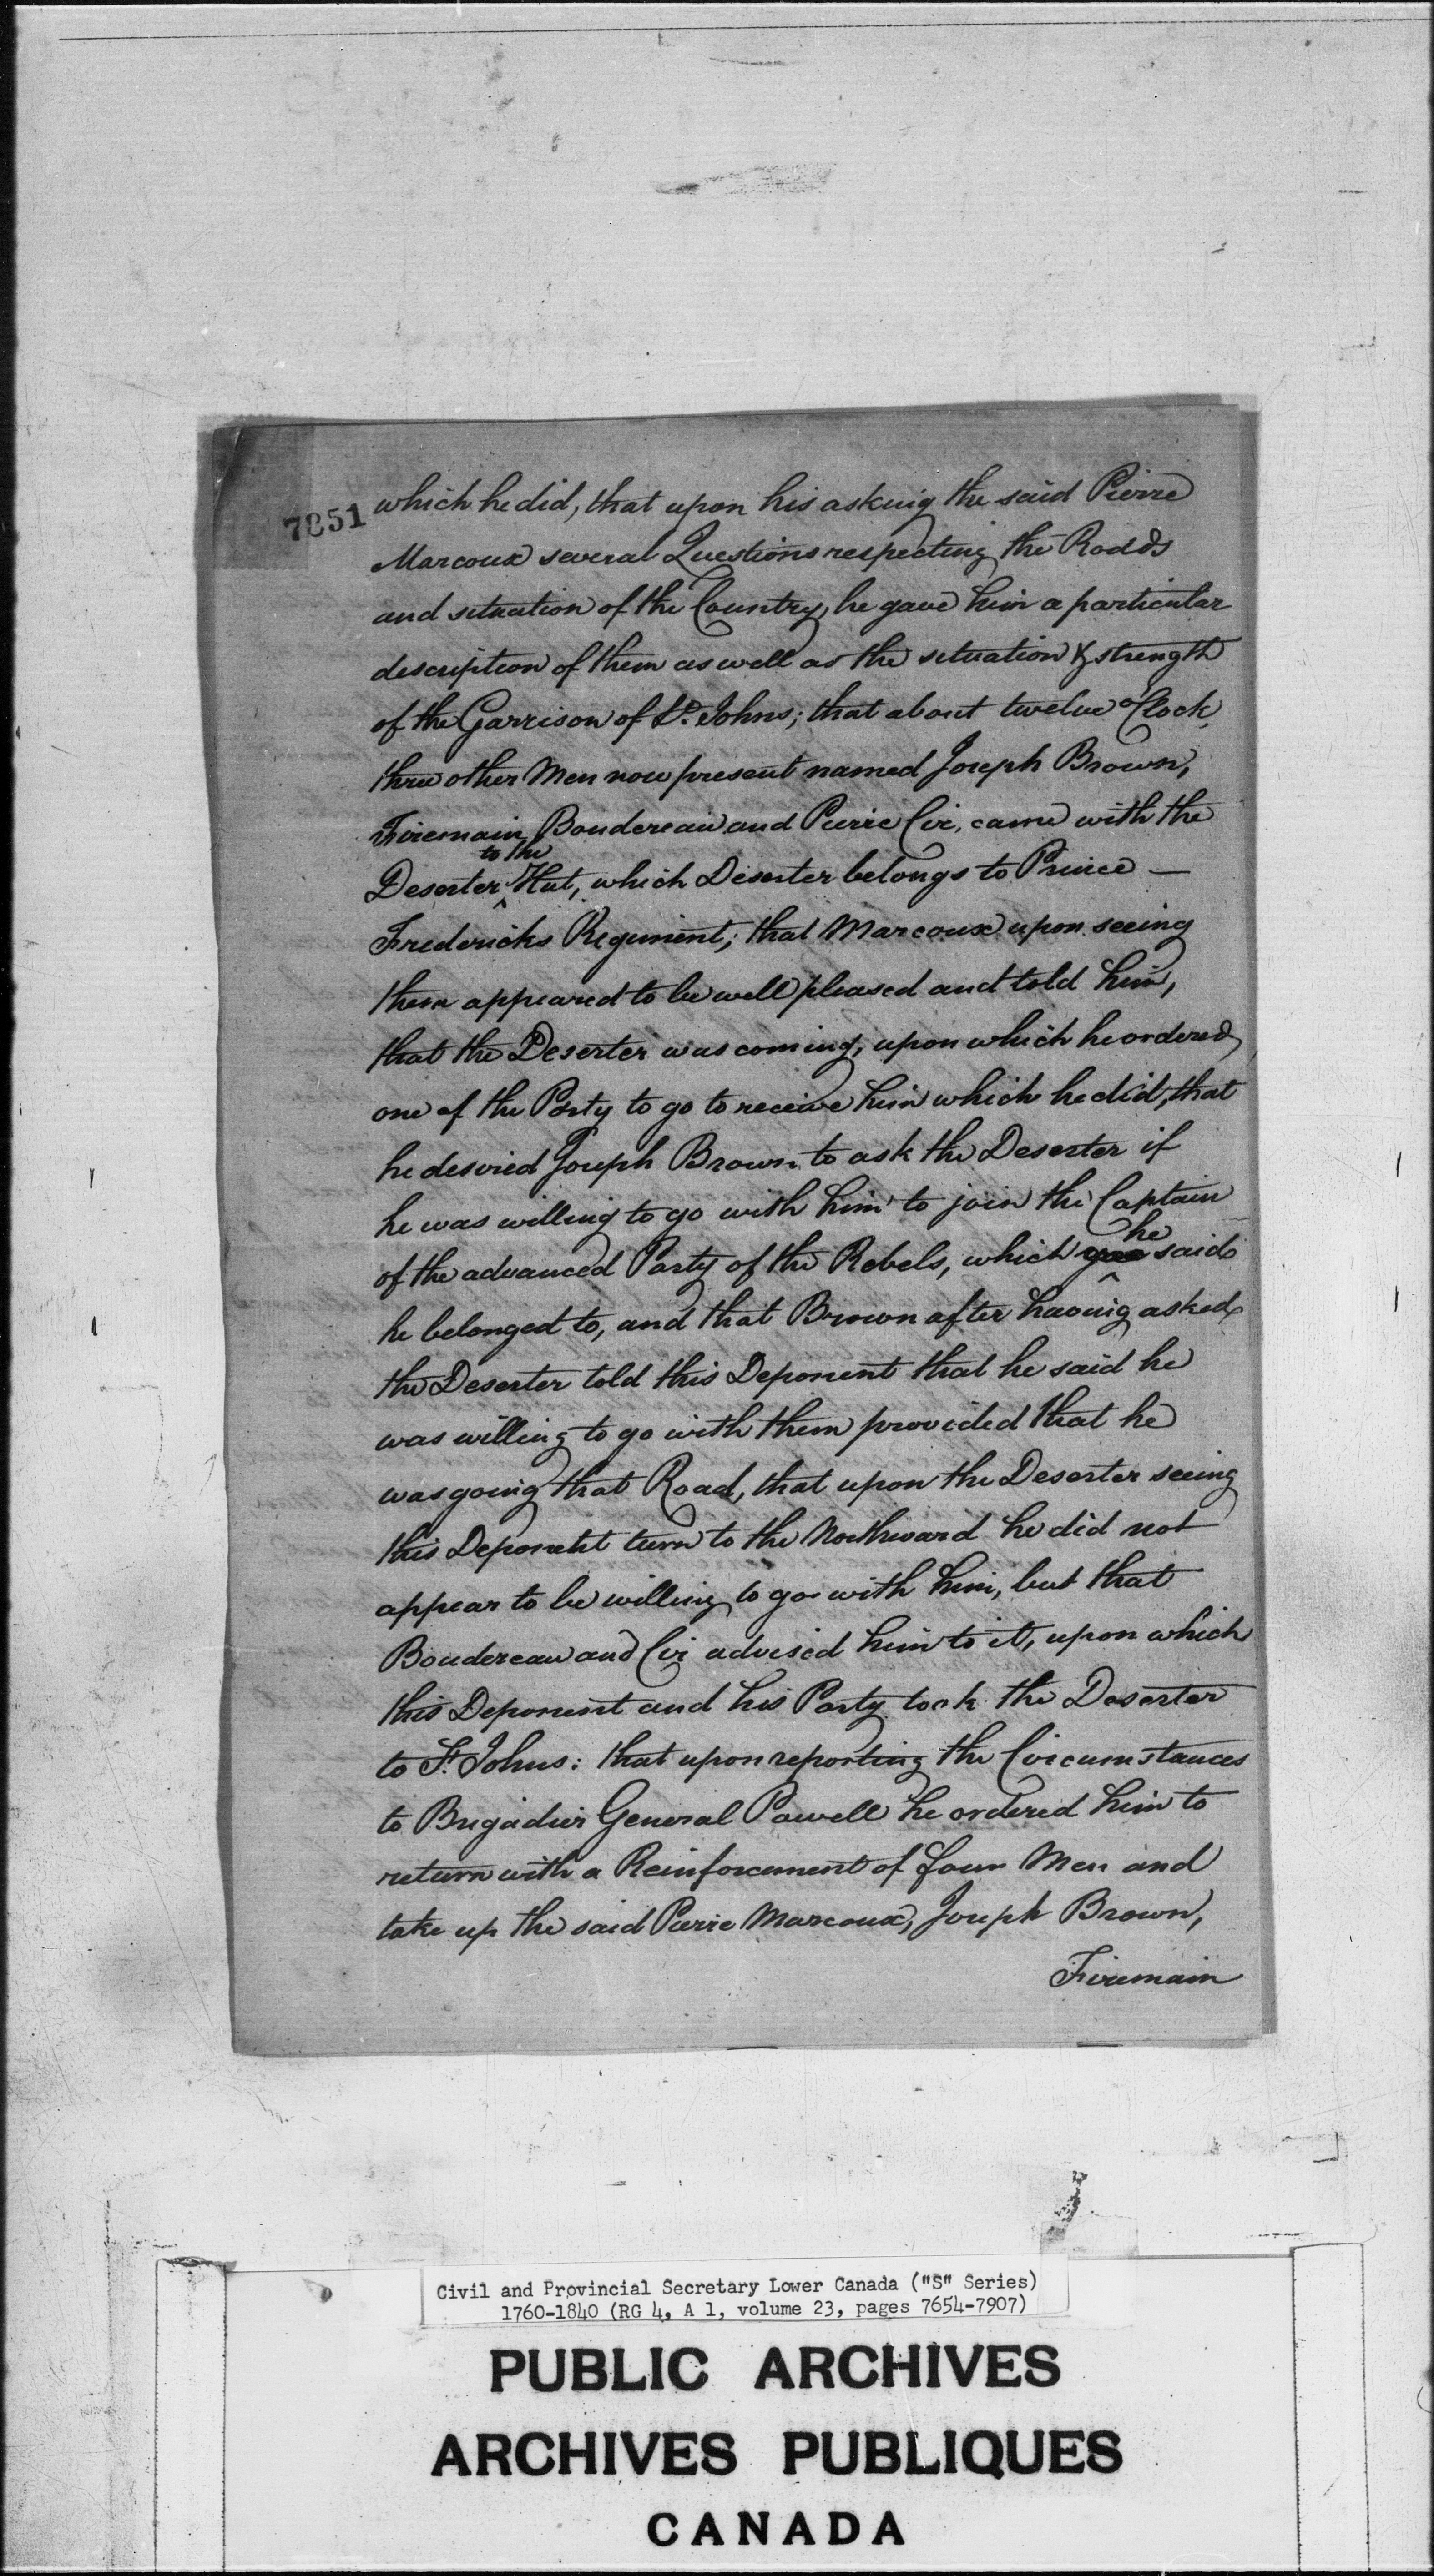 7851
which he did, that upon his asking the said Pierre
Marcoux several Questions respecting the Roads
and situation of the Country, he gave him a particular
description of them as well as the situation & strength
of the Garrison of St. Johns; that about twelve o'Clock,
three other Men now present named Joseph Brown,
Firemain Boudereau and Pierre Cir, came with the
to the
Deserter ^ Hut, which Deserter belongs to Prince —
Fredericks Regiment; that Marcoux upon seeing
them appeared to be well pleased and told him,
that the Deserter was coming, upon which he ordered
one of the Party to go to receive him which he did, that
he desired Joseph Brown to ask the Deserter if
he was willing to go with him to join the Captain
he
of the advanced Party of the Rebels, which ^ said
he belonged to, and that Brown after having asked
the Deserter told this Deponent that he said he
was willing to go with them provided that he
was going that Road, that upon the Deserter seeing
this Deponent turn to the Northward he did not
appear to be willing to go with him, but that
Boudereau and Cir advised him to it, upon which
this Deponent and his Party took the Deserter
to St. Johns: that upon reporting the Circumstances
to Brigadier General Powell he ordered him to
return with a Reinforcement of four Men and
take up the said Pierre Marcoux, Joseph Brown,
Firemain
Civil and Provincial Secretary Lower Canada ("S" Series)
1760-1840 (RG 4, A 1, volume 23, pages 7654-7907)
PUBLIC ARCHIVES
ARCHIVES PUBLIQUES
CANADA